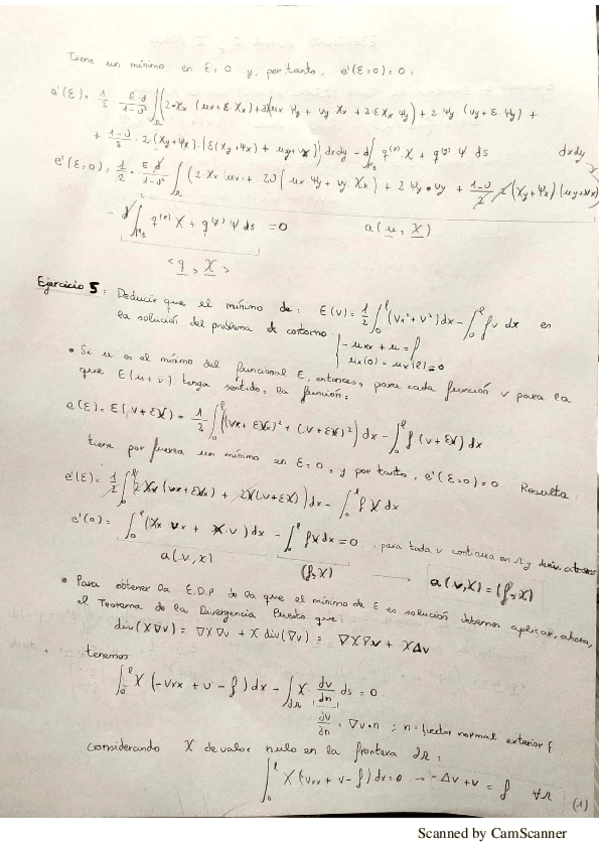 Tiene un mínimo en ε=0 y, por tanto, e'(ε=0)=0:
e'(ε)= 1/2 · E·d/1-ν² ∫∫_Ω (2·Xx (ux+ε·Xx)+2ν(ux Ψy + vy Xx + 2εXx Ψy) + 2Ψy (vy+εΨy) +
+ 1-ν/2 · 2·(Xy+Ψx)·(ε(Xy+Ψx) + uy+vx)) dxdy - d∫ q⁽ˣ⁾·X + q⁽ʸ⁾Ψ ds
dxdy
e'(ε=0)= 1/2 · E·d/1-ν² ∫_Ω (2·Xx ux + 2ν(ux·Ψy + vy·Xx) + 2Ψy·vy + 1-ν/2 · 2(Xy+Ψx)(uy+vx)
- d∫ q⁽ˣ⁾X + q⁽ʸ⁾Ψ ds =0 a(u, X)
<q, X>
Ejercicio 5: Deducir que el mínimo de: E(v)= 1/2 ∫₀ˡ (vx²+v²)dx - ∫₀ˡ fv dx es
la solución del problema de contorno: { -uxx + u = f
ux(0) = ux(l)=0
• Si u es el mínimo del funcional E, entonces, para cada función v para la
que E(u+v) tenga sentido, la función:
e(ε)= E(v+εX) = 1/2 ∫₀ˡ ((vx+εXx)² + (v+εX)²) dx - ∫₀ˡ f(v+εX) dx
tiene por fuerza un mínimo en ε=0, y por tanto, e'(ε=0)=0 Resulta:
e'(ε)= 1/2 ∫₀ˡ (2Xx(vx+εXx) + 2X(v+εX)) dx - ∫₀ˡ f X dx
e'(0)= ∫₀ˡ (Xx vx + X·v) dx - ∫₀ˡ fX dx = 0 para toda v continua en Ω y
a(v,x) (f,X) → a(v,X)=(f,X)
• Para obtener la E.D.P de la que el mínimo de E es solución debemos aplicar, ahora,
el Teorema de la Divergencia Puesto que:
div(X∇v) = ∇X∇v + X div(∇v) = ∇X∇v + XΔv
tenemos
∫₀ˡ X(-vxx + v - f) dx - ∫_∂Ω X· dv/dn ds = 0
∂v/∂n = ∇v•n ; n = {vector normal exterior}
Considerando X de valor nulo en la frontera ∂Ω:
∫₀ˡ X(-vxx + v - f) dx = 0 → -Δv + v = f ∀Ω
(1)
Scanned by CamScanner